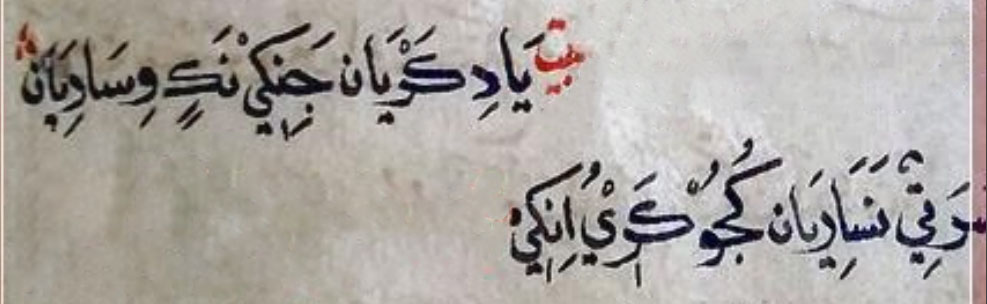 بيت يَادِ كَوْيَان جَنِكِيْ نَكٍ وِسَادِيَان
وَتِيْ نَسَادِيَان كُجُوْ كَوْيُ اِنِكِيْ